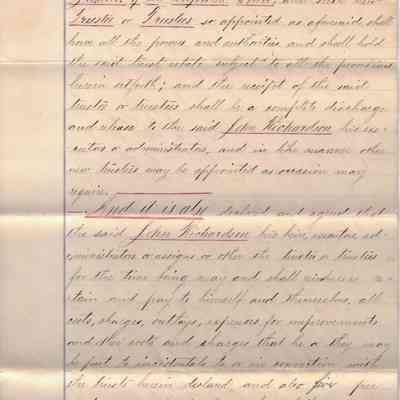 Trustee or Trustees so appointed as aforesaid shall
have all the powers and authorities and shall hold
the said trust estate subject to all the provisions
herein setforth; and the receipt of the said
trustee or trustees shall be a complete discharge
and release to the said John Richardson his ex-
ecutors or administrators, and in like manner other
new trustees may be appointed as occasion may
require.
And it is also declared and agreed that
the said John Richardson his heirs, executors ad-
ministrators or assigns or other the trustee or trustees
for the time being may and shall re-
tain and pay to himself and themselves, all
costs, charges, outlays, expenses for improvements
and other costs and charges that he or they may
be put to incidental to or in connection with
the trusts herein declared, and also five per